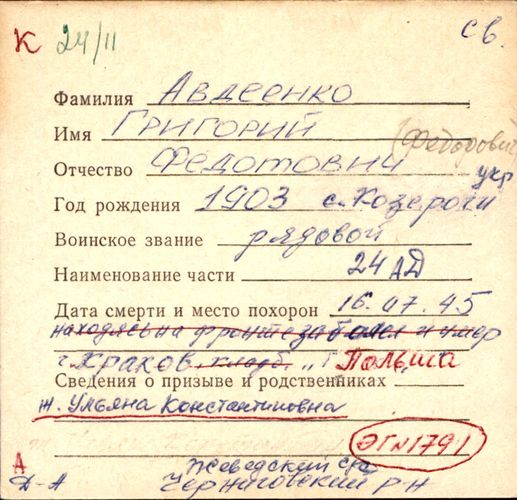 К 24/11
св.
Фамилия Авдеенко
Имя Григорий
(Федорович)
Отчество Федотович
укр
Год рождения 1903 с. Козероги
Воинское звание рядовой
Наименование части 24 АД
Дата смерти и место похорон 16.07.45
находясь на фронте заболел и умер
г. Краков кладб. Польша
Сведения о призыве и родственниках
ж. Ульяна Константиновна
ЭГ№1791
А
Д-А
Жеведский с/с
Черниговский р-н